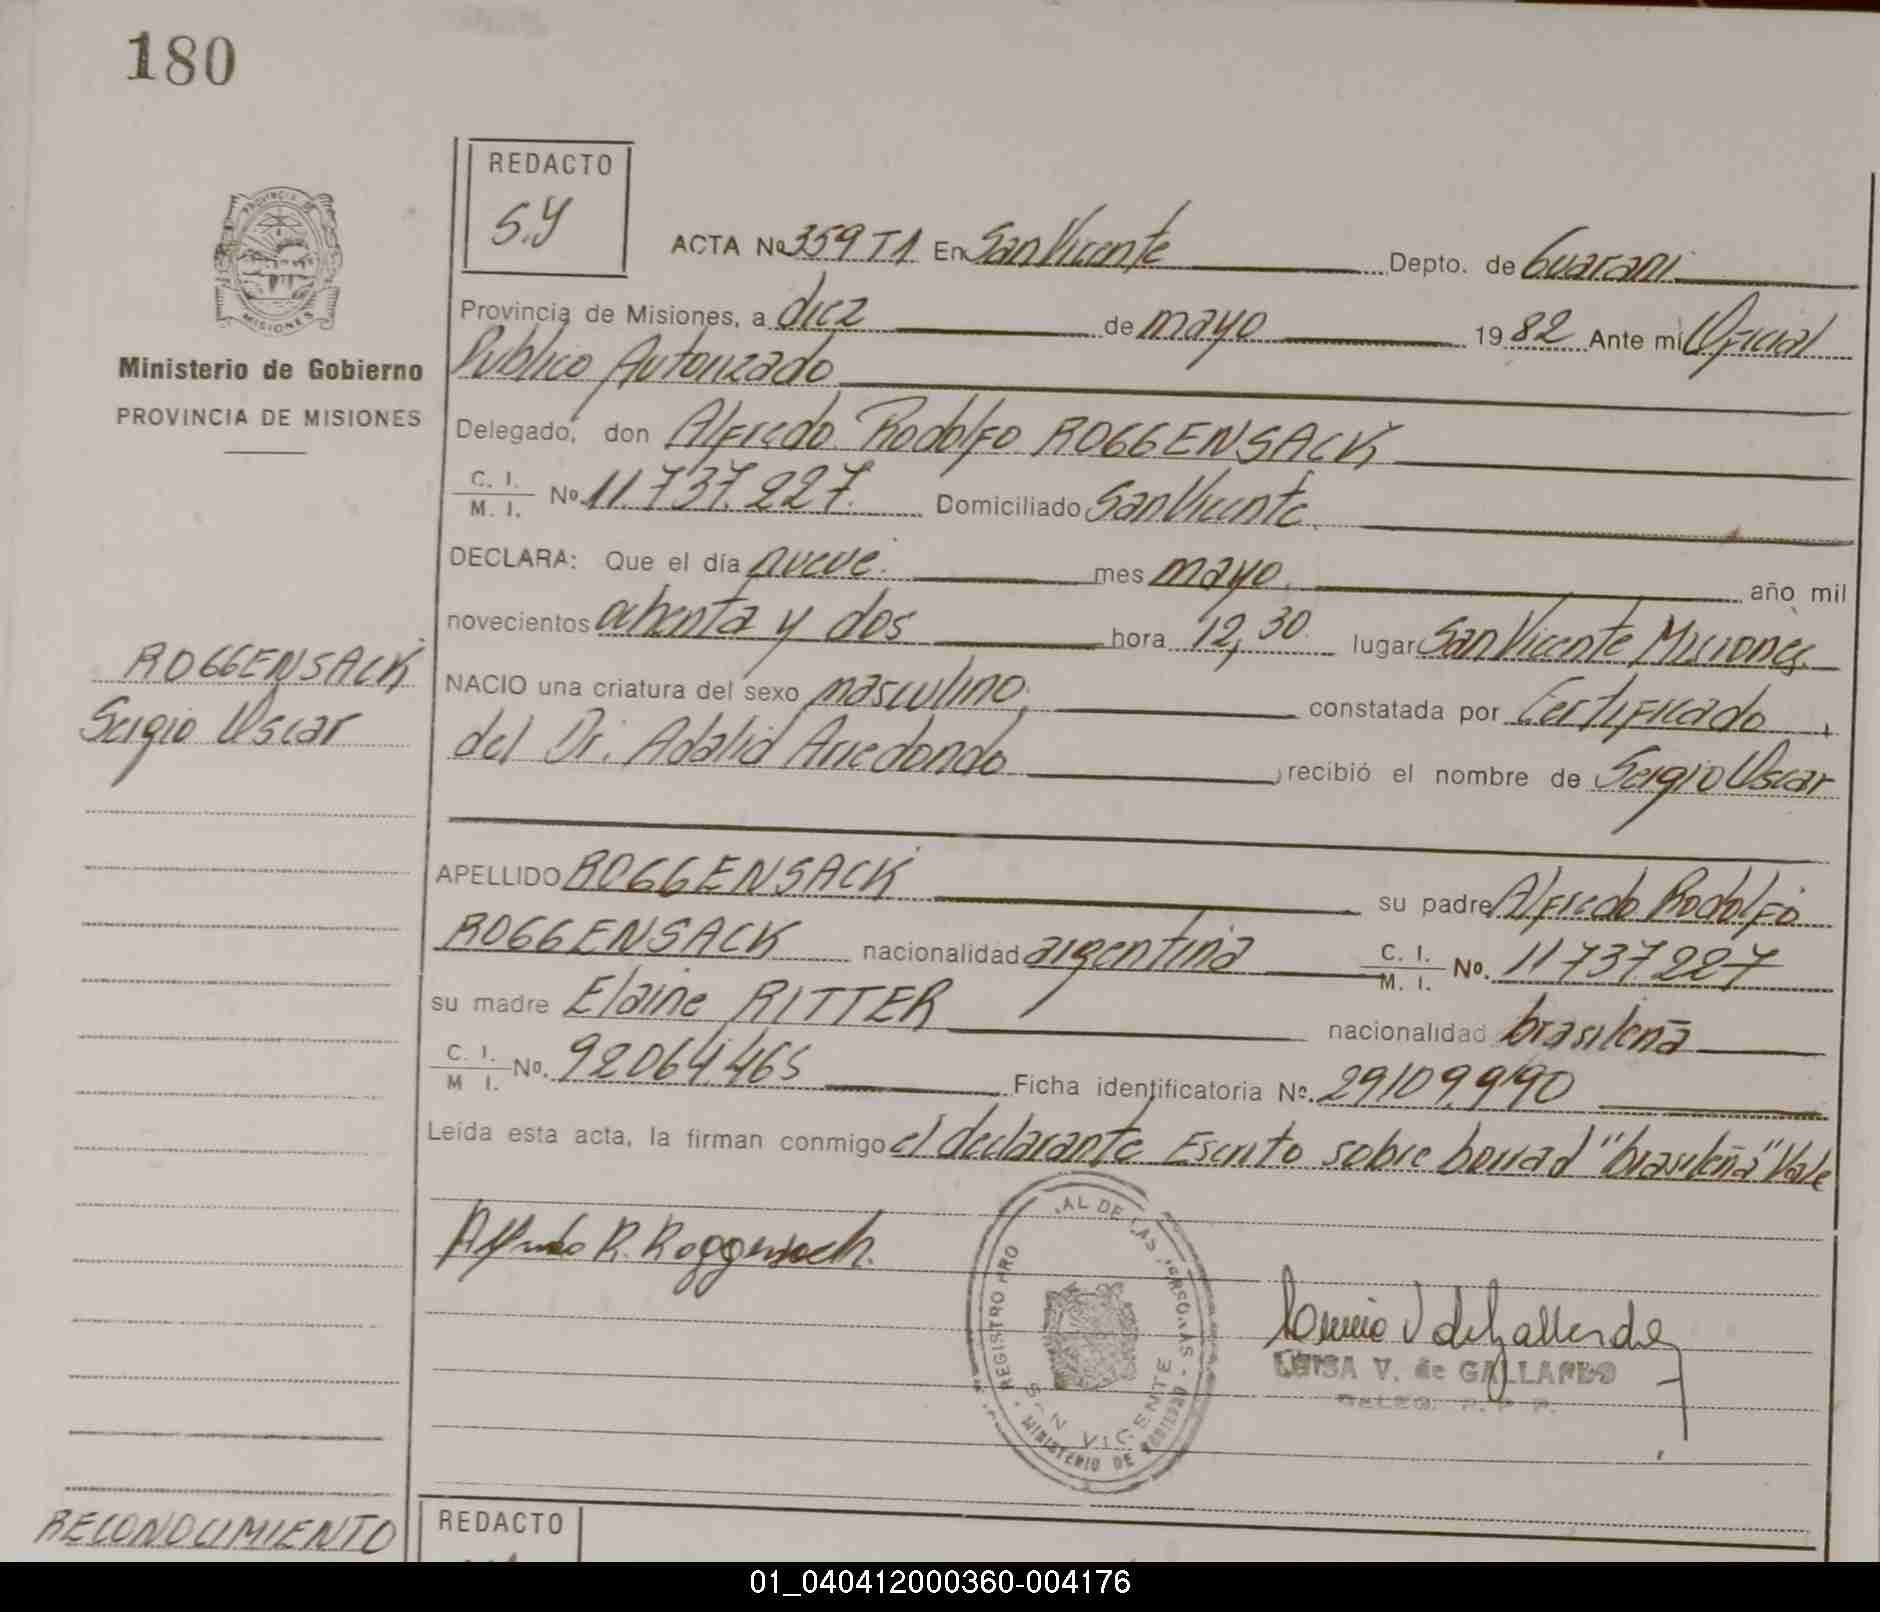 180
REDACTO
S.Y
ACTA No 359 T1 En San Vicente Depto. de Guaraní
Provincia de Misiones, a diez de mayo 1982 Ante mi Oficial
Publico Autorizado
Delegado, don Alfredo Rodolfo ROGGENSACK
C. I. / M. I. No. 11.737.227. Domiciliado San Vicente
DECLARA: Que el día nueve. mes mayo. año mil
novecientos ochenta y dos hora 12,30 lugar San Vicente Misiones
NACIO una criatura del sexo masculino, constatada por Certificado
del Dr. Adalid Arredondo recibió el nombre de Sergio Oscar
APELLIDO ROGGENSACK su padre Alfredo Rodolfo
ROGGENSACK nacionalidad argentina C. I. / M. I. No. 11737.227
su madre Elaine RITTER nacionalidad brasileña
C. I. / M I. No. 92064.465 Ficha identificatoria No. 29109.990
Leída esta acta, la firman conmigo el declarante Escrito sobre borrad "brasileña" Vale
Alfredo R. Roggensack.
LUISA V. de GALLARDO
PROVINCIA DE
MISIONES
Ministerio de Gobierno
PROVINCIA DE MISIONES
ROGGENSACK
Sergio Oscar
REGISTRO PRO AL DE LAS PERSONAS
SAN VICENTE
MINISTERIO DE GOBIERNO
RECONOCIMIENTO
REDACTO
01_040412000360-004176